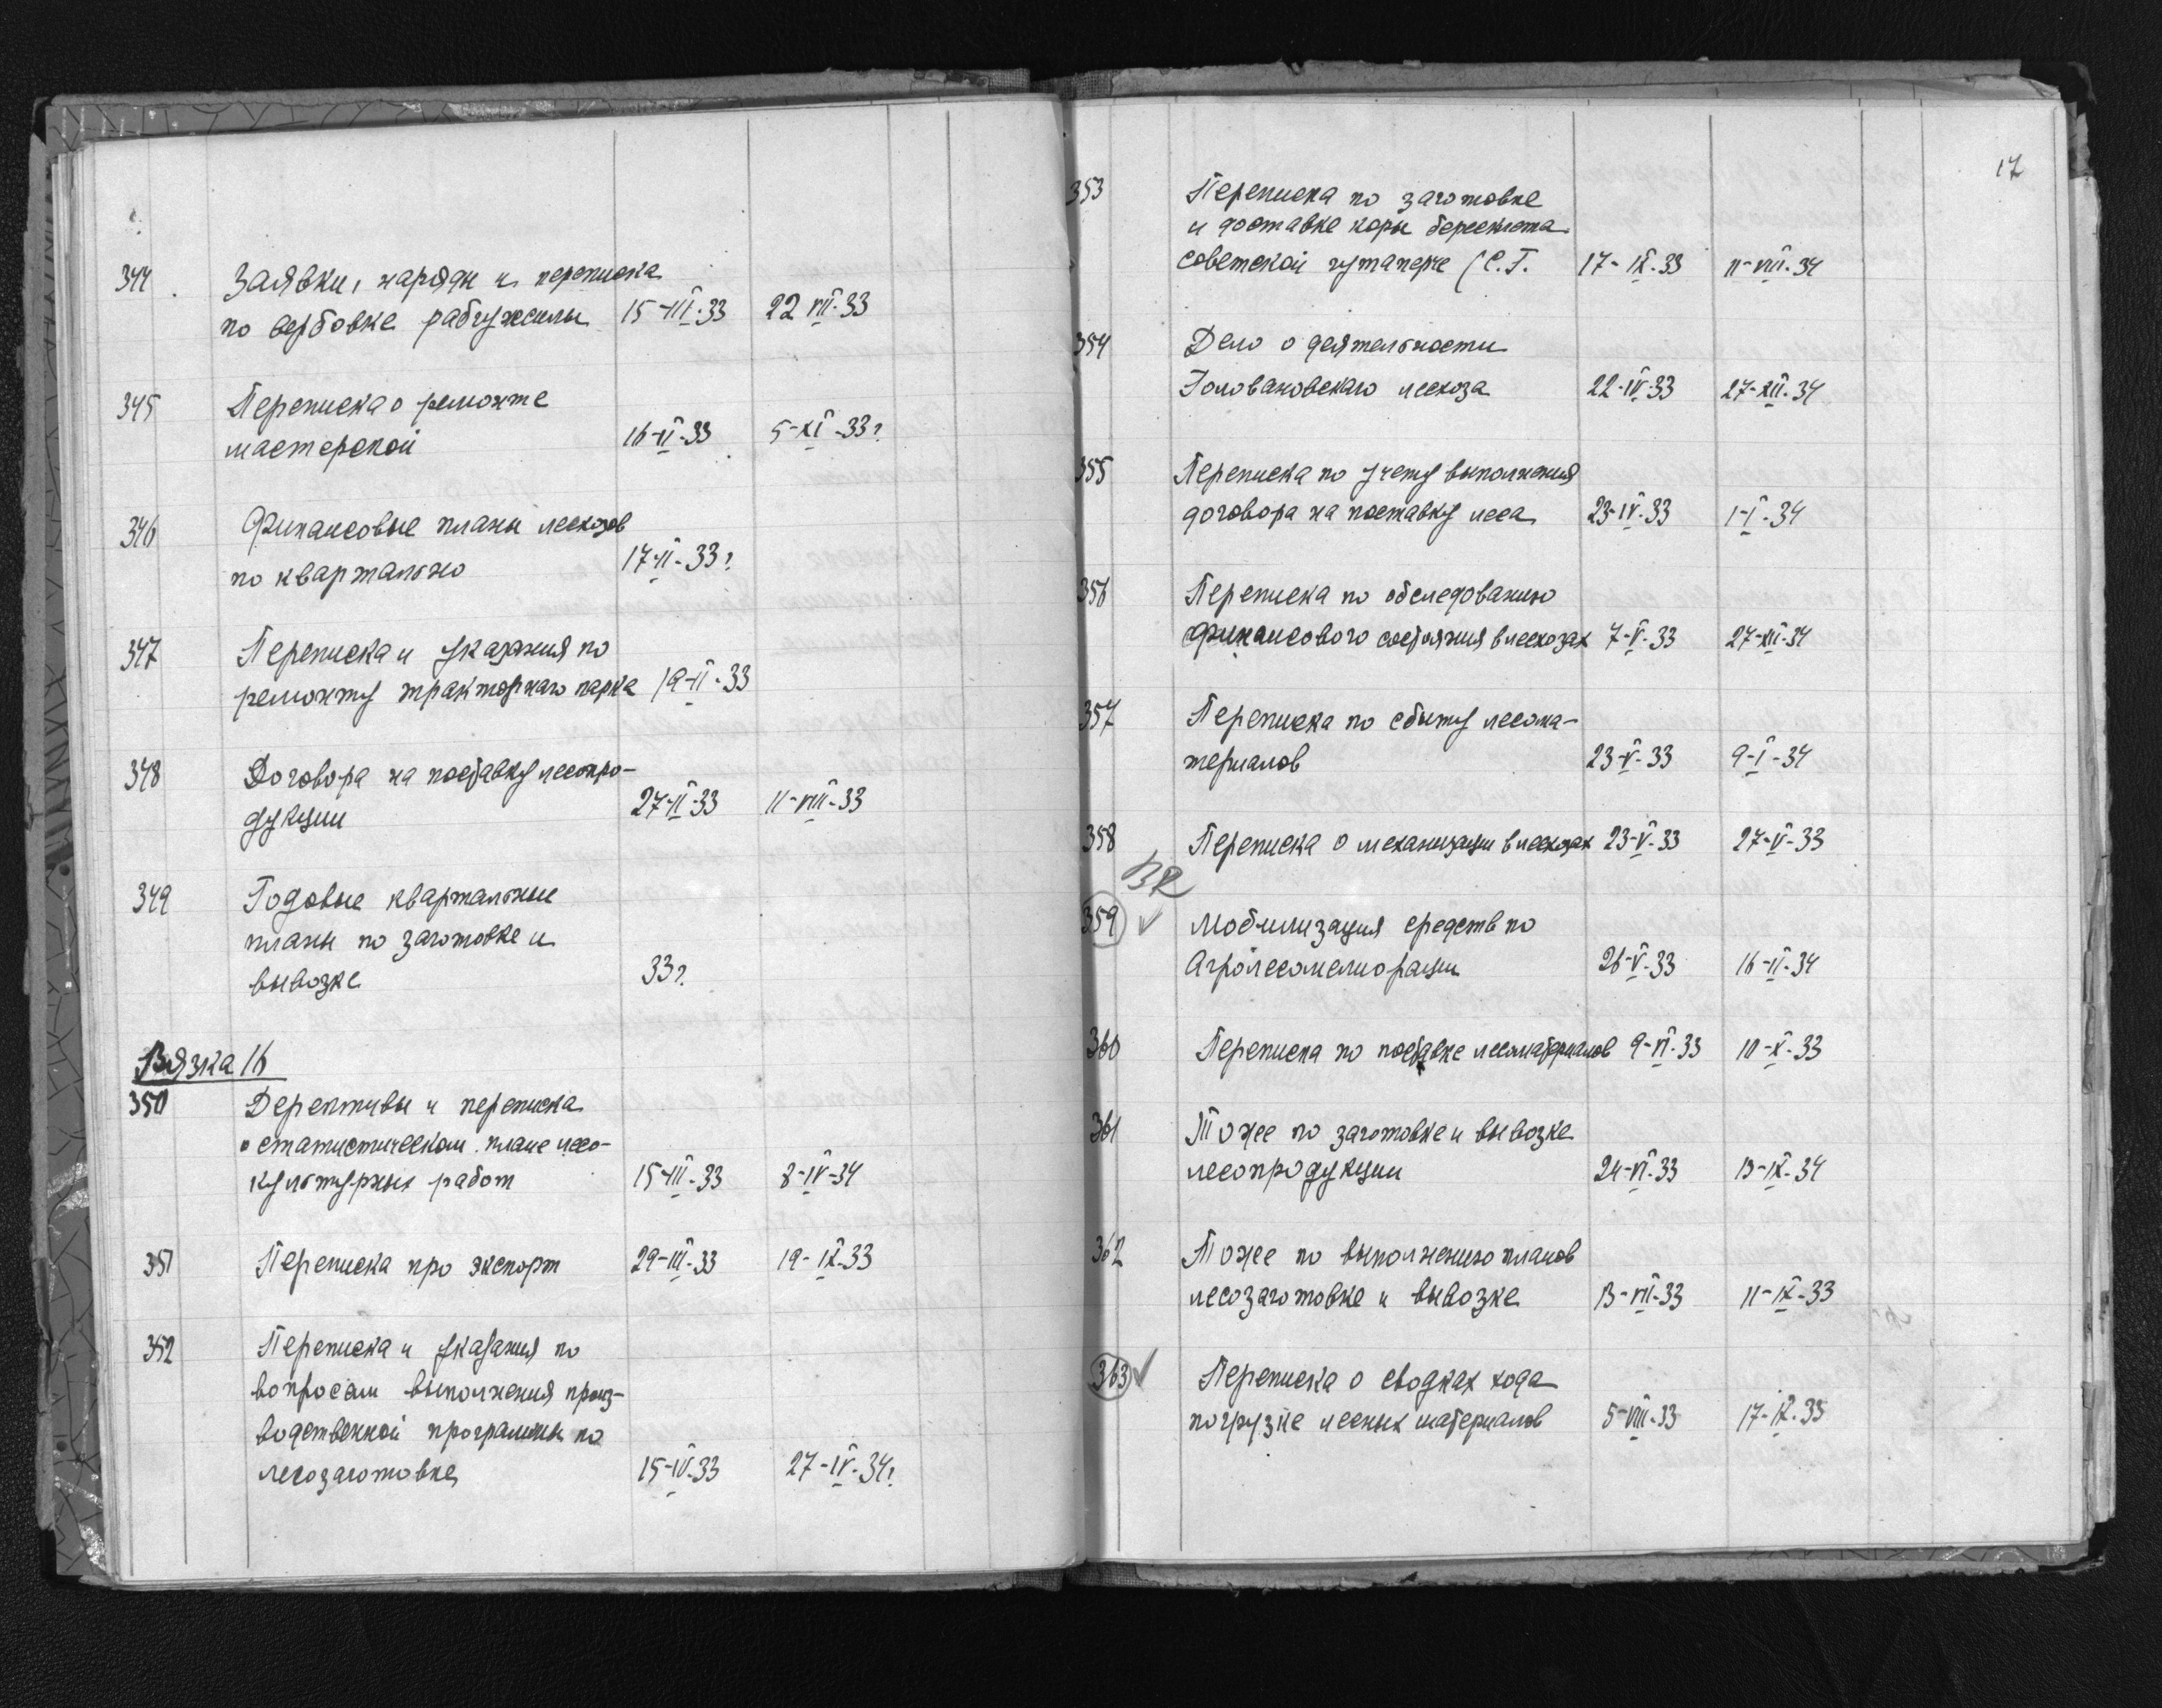 344 Заявки, наряды и переписка
по вербовке рабгужсилы 15-III-33 22 VII-33
345 Переписка о ремонте
мастерской 16-II-33 5-XI-33 г.
346 Финансовые планы лесхозов
по квартально 17-II-33 г.
347 Переписка и указания по
ремонту тракторного парка 19-II-33
348 Договора на поставку лесопро-
дукции 27-II-33 11-VIII-33
349 Годовые квартальные
планы по заготовке и
вывозке 33 г.
Вязка 16
350 Дерективы и переписка
о статистическом плане лесо-
культурных работ 15-III-33 8-IV-34
351 Переписка про экспорт 29-III-33 19-IX-33
352 Переписка и указания по
вопросам выполнения произ-
водственной программы по
лесозаготовке 15-IV-33 27-IV-34 г.
17
353 Переписка по заготовке
и доставке коры берескета
советской гутаперче (С.Г. 17-IX-33 11-VIII-34
354 Дело о деятельности
Головановского лесхоза 22-IV-33 27-XII-34
355 Переписка по учету выполнения
договора на поставку леса 23-IV-33 1-I-34
356 Переписка по обследованию
финансового состояния в лесхозах 7-V-33 27-XII-34
357 Переписка по сбыту лесома-
териалов 23-V-33 9-I-34
358 Переписка о механизации в лесхозах 23-V-33 27-V-33
359 Мобилизация средств по
Агролесомелиорации 26-V-33 16-II-34
360 Переписка по поставке лесоматериалов 9-VI-33 10-X-33
361 Тоже по заготовке и вывозке
лесопродукции 24-VI-33 13-IX-34
362 Тоже по выполнению планов
лесозаготовке и вывозке 13-VII-33 11-IX-33
363 Переписка о сводках хода
погрузке лесных материалов 5-VIII-33 17-IX-33